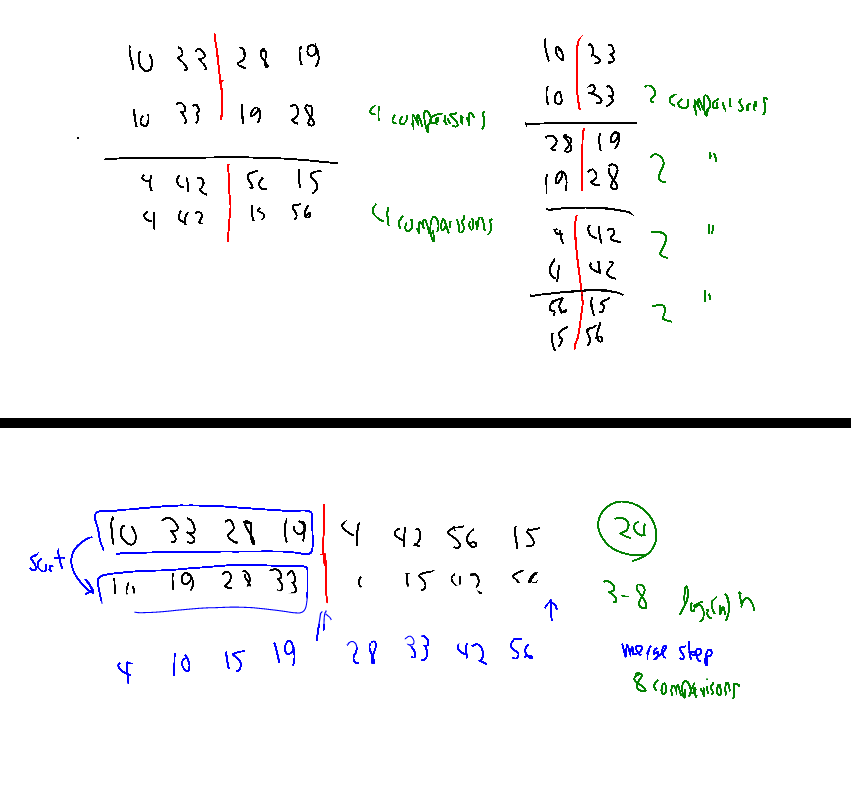 10 33 28 19
10 33 19 28 4 comparisons
4 42 56 15
4 42 15 56 4 comparisons
10 33
10 33 2 comparisons
28 19
19 28 2 "
4 42
4 42 2 "
56 15
15 56 2 "
10 33 28 19 4 42 56 15 24
sort 10 19 28 33 4 15 42 56 3-8 log₂(n) n
4 10 15 19 28 33 42 56 merge step
8 comparisons